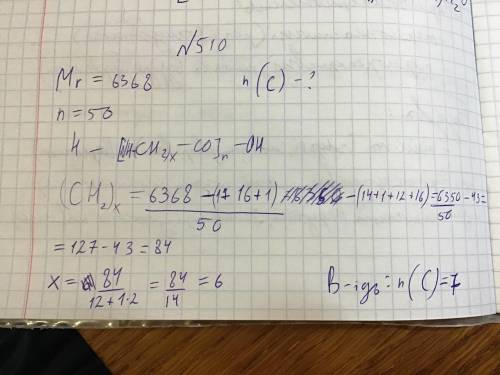 №510
Mr = 6368 n(C) - ?
n = 50
H - [NH-(CH₂)ₓ - CO]ₙ - OH
(CH₂)ₓ = (6368 - (1+16+1))/50 - (14+1+12+16) = 6350/50 - 43 =
= 127 - 43 = 84
x = 84/(12+1·2) = 84/14 = 6 В-idь: n(C) = 7